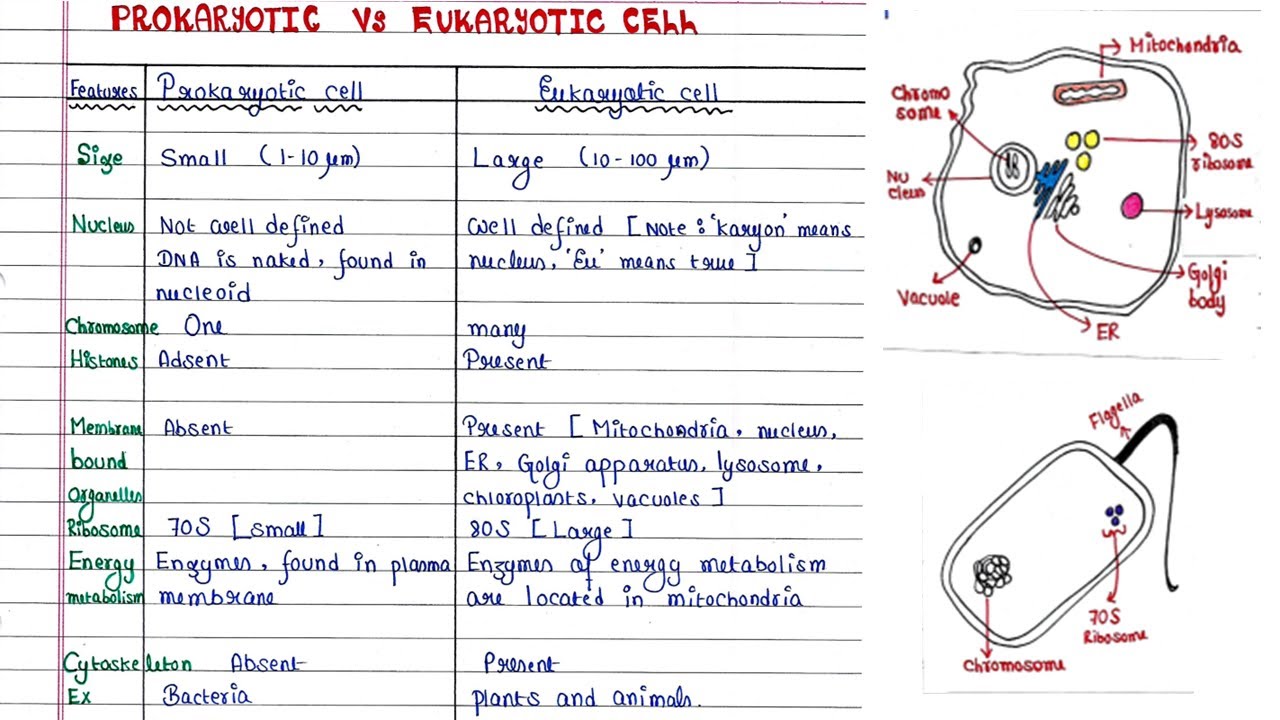 PROKARYOTIC Vs EUKARYOTIC CELL
Features Prokaryotic cell Eukaryotic cell
Size Small (1-10 μm) Large (10-100 μm)
Nucleus Not well defined Well defined [Note: 'Karyon' means
DNA is naked, found in nucleus, 'Eu' means true]
nucleoid
Chromosome One many
Histones Adsent Present
Membrane Absent Present [Mitochondria, nucleus,
bound ER, Golgi apparatus, lysosome,
Organelles chloroplants, vacuoles]
Ribosome 70S [small] 80S [Large]
Energy Enzymes, found in plasma Enzymes of energy metabolism
metabolism membrane are located in mitochondria
Cytoskeleton Absent Present
Ex Bacteria plants and animals.
Mitochondria
Chromo
some
80S
ribosome
Nu
cleus
Lysosome
Golgi
body
Vacuole
ER
Flagella
70S
Ribosome
Chromosome